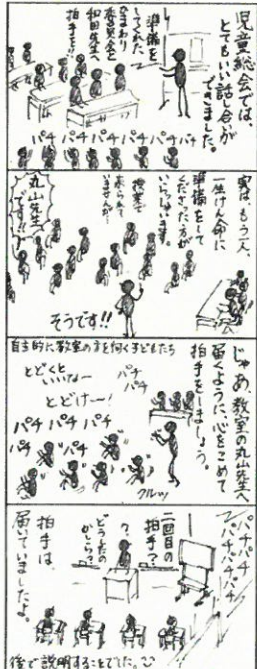 児童総会では、
とてもいい話し合いが
できました。
準備を
してくれた
ひまわり
委員会と
和田先生へ
拍手を!!
パチ パチ パチ パチ パチ パチ
実は、もう一人、
一生けん命に
準備をして
くださった方が
いらっしゃいます。
授業で
来られて
いませんが…
丸山先生
です!!
そうです!!
自主的に教室の方を向く子どもたち
じゃあ、教室の丸山先生へ
届くように、心をこめて
拍手をしましょう。
とどくと
いいなー
とどけー!
パチ パチ
パチ パチ パチ
パチ パチ
クルッ
パチパチ
パチパチパチ
パチパチ
二回目の
拍手?
?
どうしたの
かしら?
拍手は、
届いていましたよ。
後で説明することでした。